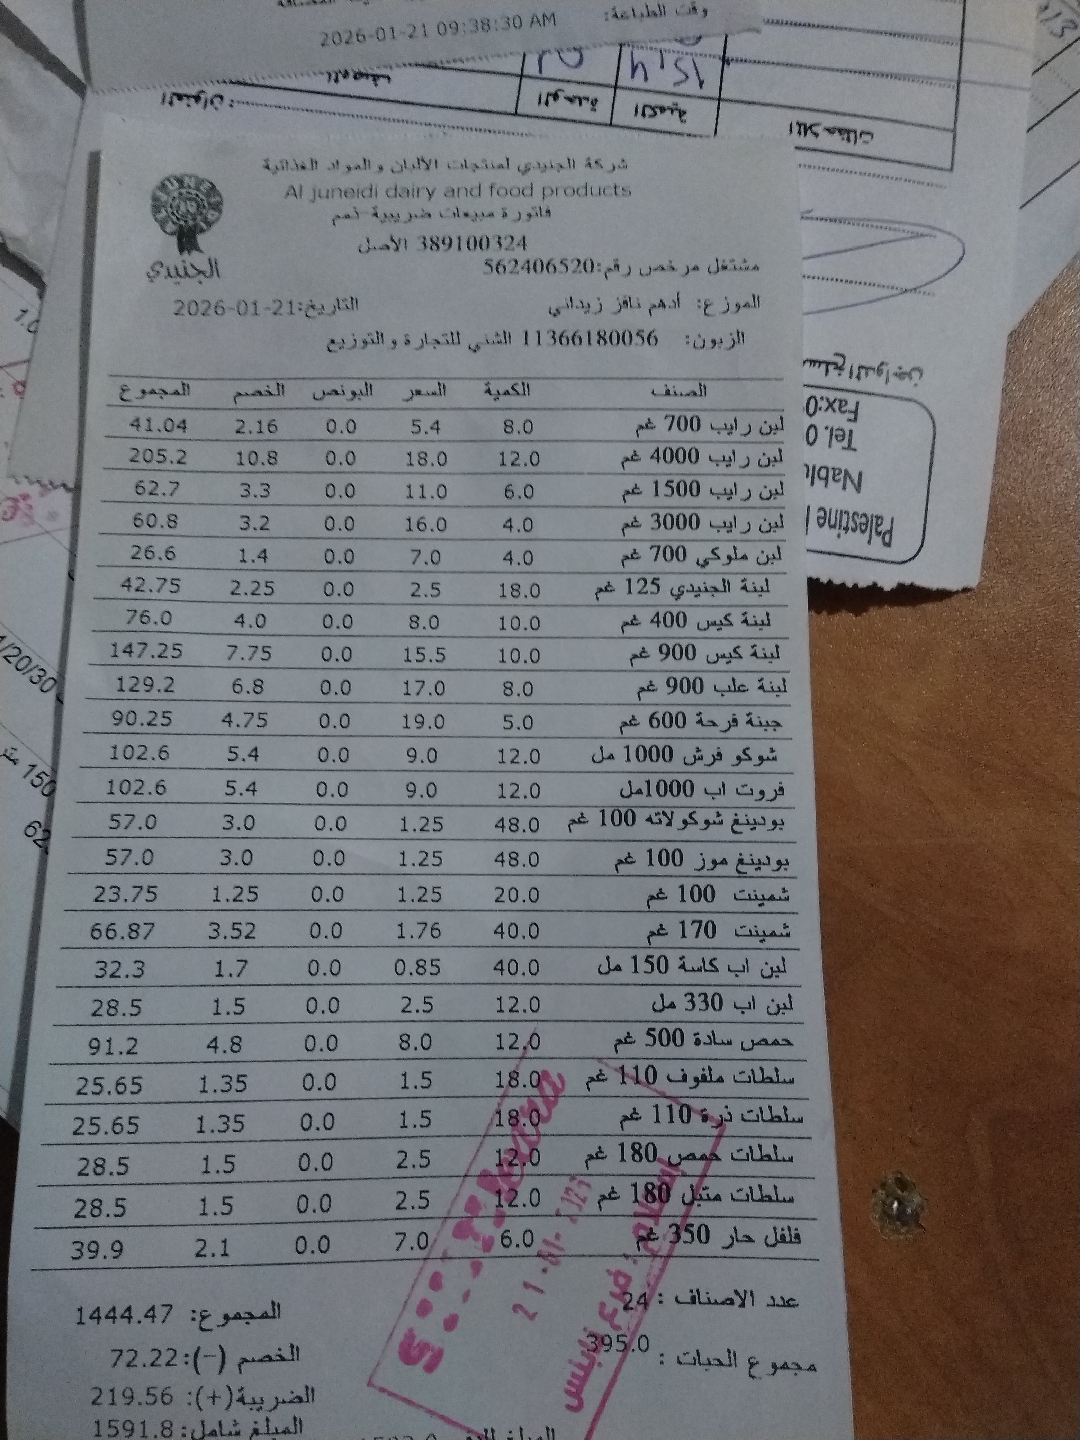 وقت الطباعة: 2026-01-21 09:38:30 AM
العنوان:
الوحدة
الكمية
الملاحظات
15,4
شركة الجنيدي لمنتجات الألبان والمواد الغذائية
Al juneidi dairy and food products
فاتورة مبيعات ضريبية ذمم
389100324 الأصل
مشتغل مرخص رقم:562406520
الجنيدي
الموزع: أدهم نافز زيداني التاريخ:2026-01-21
الزبون: 11366180056 الشني للتجارة والتوزيع
الصنف الكمية السعر البونص الخصم المجموع
لبن رايب 700 غم 8.0 5.4 0.0 2.16 41.04
لبن رايب 4000 غم 12.0 18.0 0.0 10.8 205.2
لبن رايب 1500 غم 6.0 11.0 0.0 3.3 62.7
لبن رايب 3000 غم 4.0 16.0 0.0 3.2 60.8
لبن ملوكي 700 غم 4.0 7.0 0.0 1.4 26.6
لبنة الجنيدي 125 غم 18.0 2.5 0.0 2.25 42.75
لبنة كيس 400 غم 10.0 8.0 0.0 4.0 76.0
لبنة كيس 900 غم 10.0 15.5 0.0 7.75 147.25
لبنة علب 900 غم 8.0 17.0 0.0 6.8 129.2
جبنة فرحة 600 غم 5.0 19.0 0.0 4.75 90.25
شوكو فرش 1000 مل 12.0 9.0 0.0 5.4 102.6
فروت اب 1000مل 12.0 9.0 0.0 5.4 102.6
بودينغ شوكولاته 100 غم 48.0 1.25 0.0 3.0 57.0
بودينغ موز 100 غم 48.0 1.25 0.0 3.0 57.0
شمينت 100 غم 20.0 1.25 0.0 1.25 23.75
شمينت 170 غم 40.0 1.76 0.0 3.52 66.87
لبن اب كاسة 150 مل 40.0 0.85 0.0 1.7 32.3
لبن اب 330 مل 12.0 2.5 0.0 1.5 28.5
حمص سادة 500 غم 12.0 8.0 0.0 4.8 91.2
سلطات ملفوف 110 غم 18.0 1.5 0.0 1.35 25.65
سلطات ذرة 110 غم 18.0 1.5 0.0 1.35 25.65
سلطات حمص 180 غم 12.0 2.5 0.0 1.5 28.5
سلطات متبل 180 غم 12.0 2.5 0.0 1.5 28.5
فلفل حار 350 غم 6.0 7.0 0.0 2.1 39.9
عدد الاصناف : 24 المجموع: 1444.47
مجموع الحبات : 395.0 الخصم (-):72.22
الضريبة(+): 219.56
المبلغ شامل: 1591.8
Fax:0
Tel. 0
Nablu
Palestine
/20/30
150 متر
62